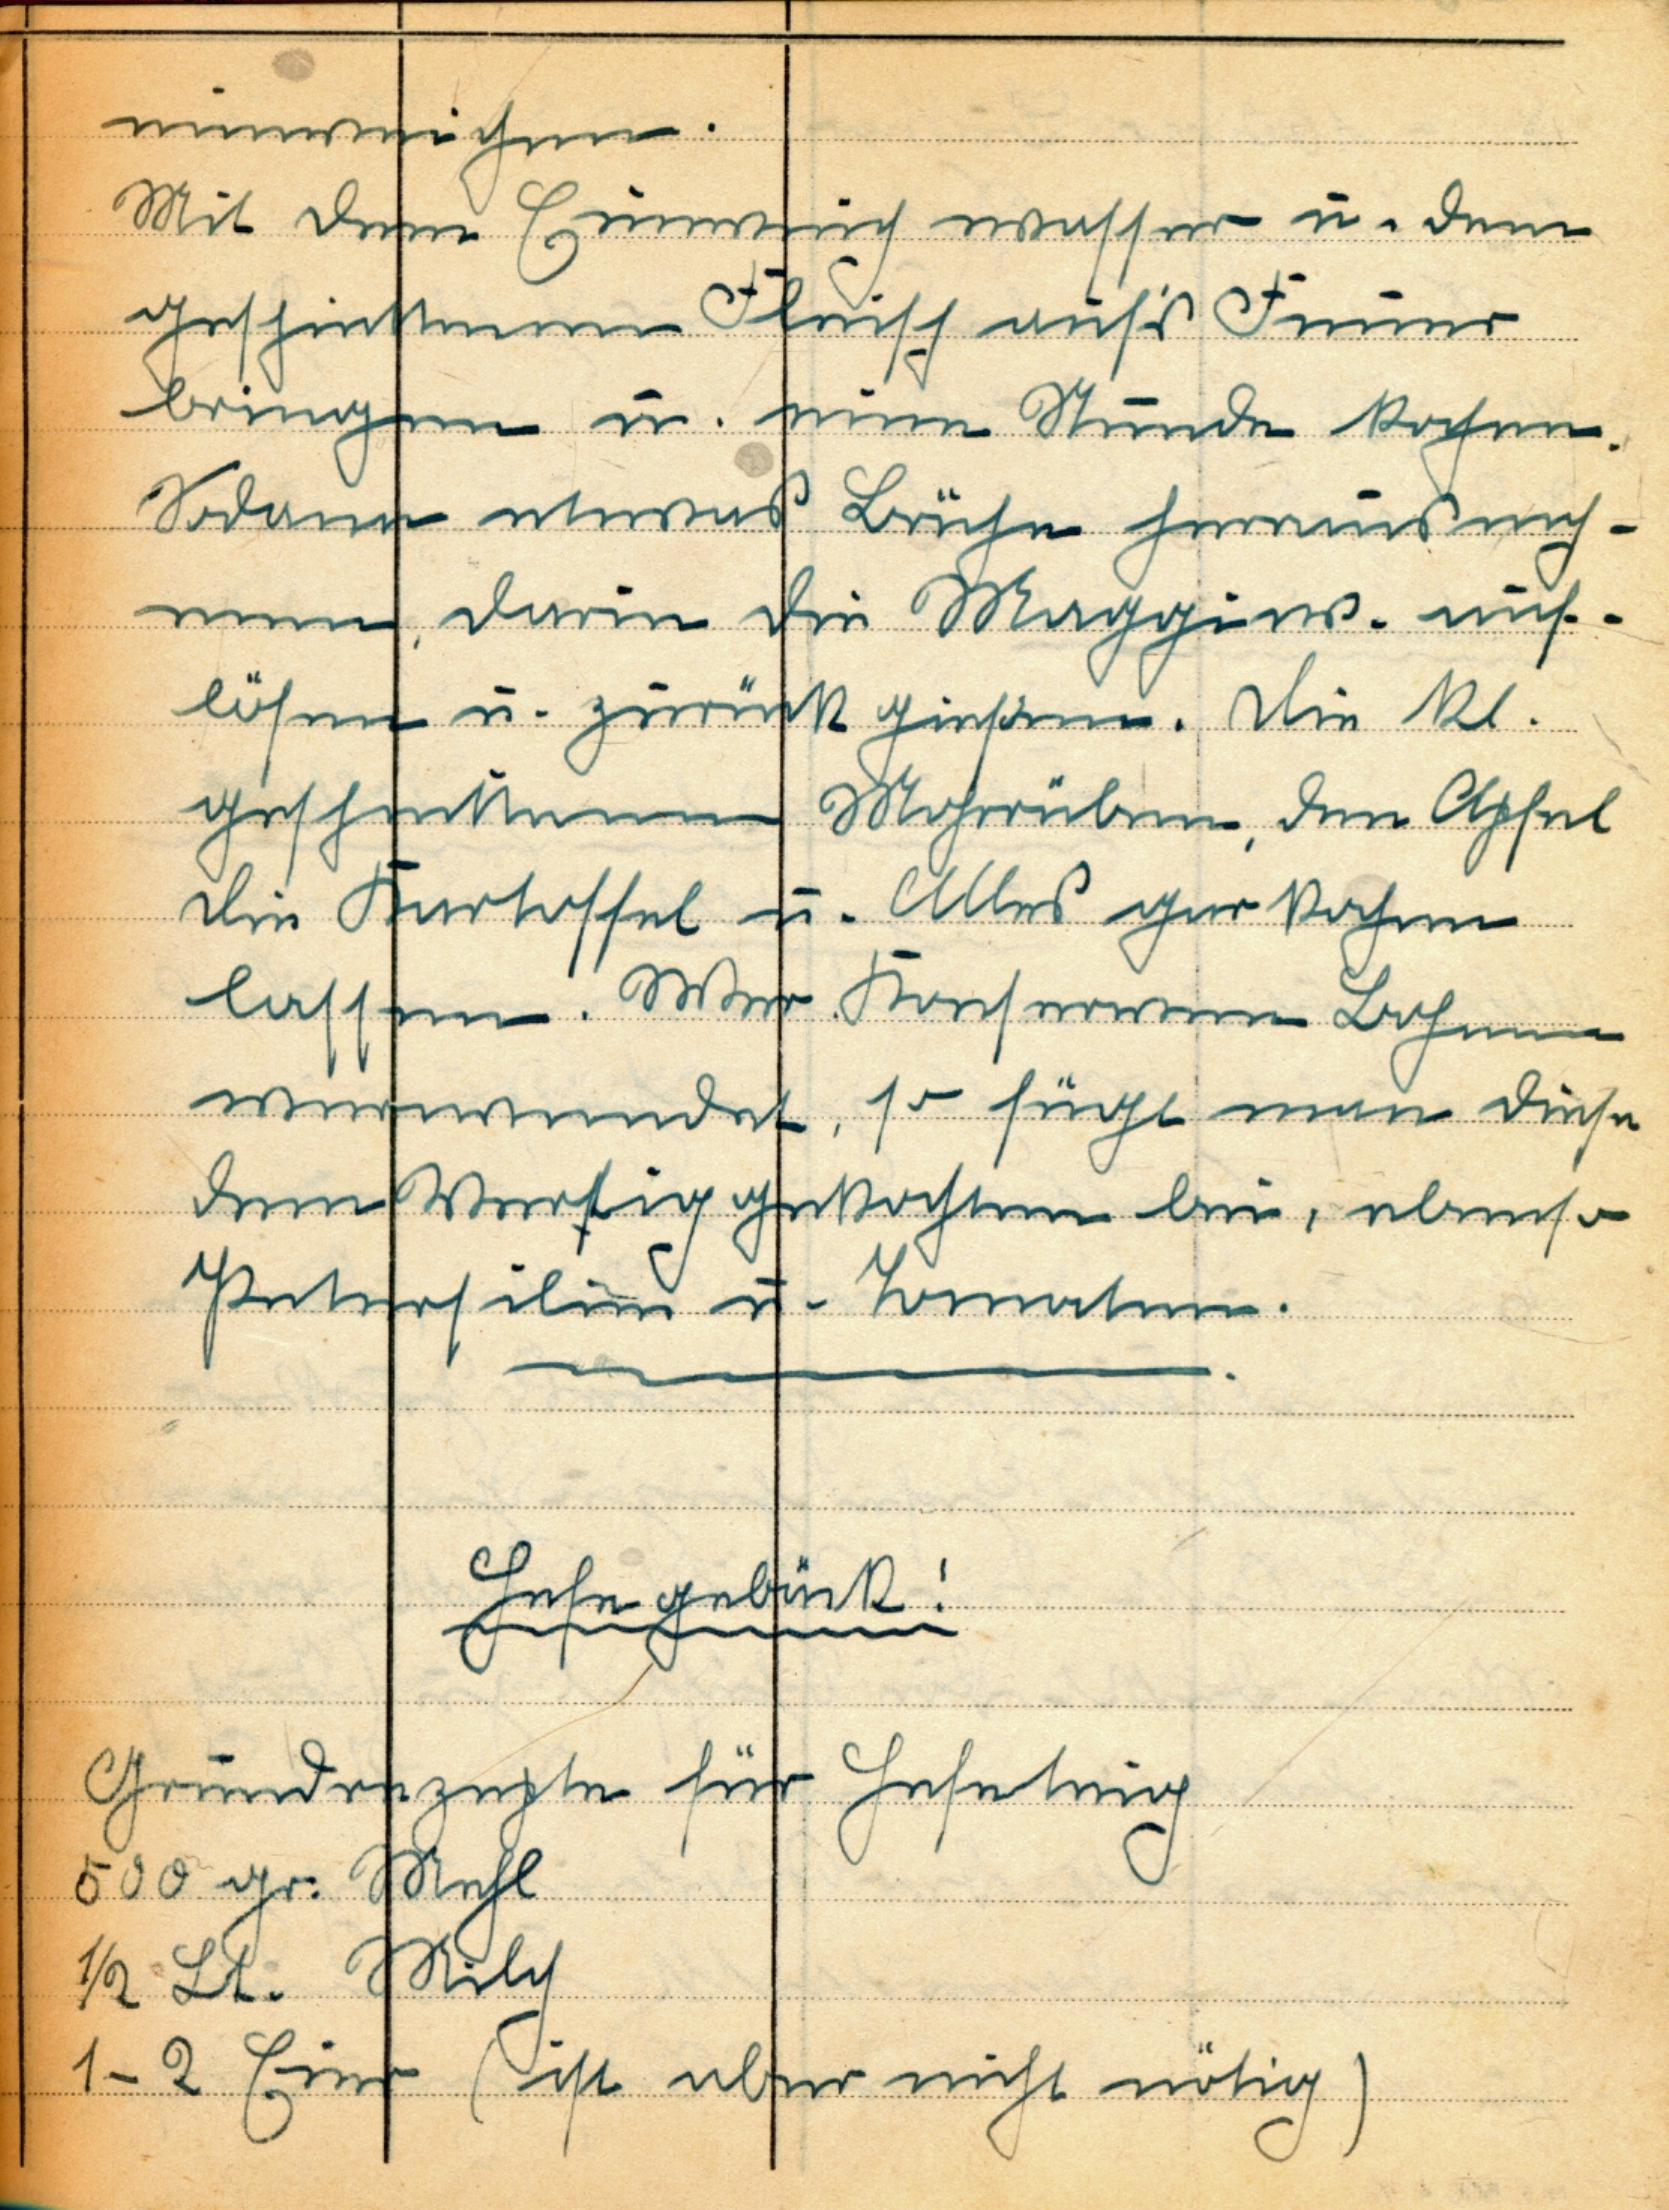 einweichen.
Mit dem Einweichwasser u. dem
geschnittenen Fleisch auf's Feuer
bringen u. eine Stunde kochen.
Sodann etwas Brühe herausneh-
men, darin die Maggiew. auf-
lösen u. zurück gießen. Die kl.
geschnittenen Mohrrüben, den Apfel
die Kartoffel u. Alles gar kochen
lassen. Wer Konserven Bohnen
verwendet, so fügt man diese
dem gekochten bei, ebenso
Petersilie u. Tomaten.
Hefegebäck!
Grundrezepte für Hefeteig
500 gr. Mehl
1/2 Lt. Milch
1-2 Eier (ist aber nicht nötig)